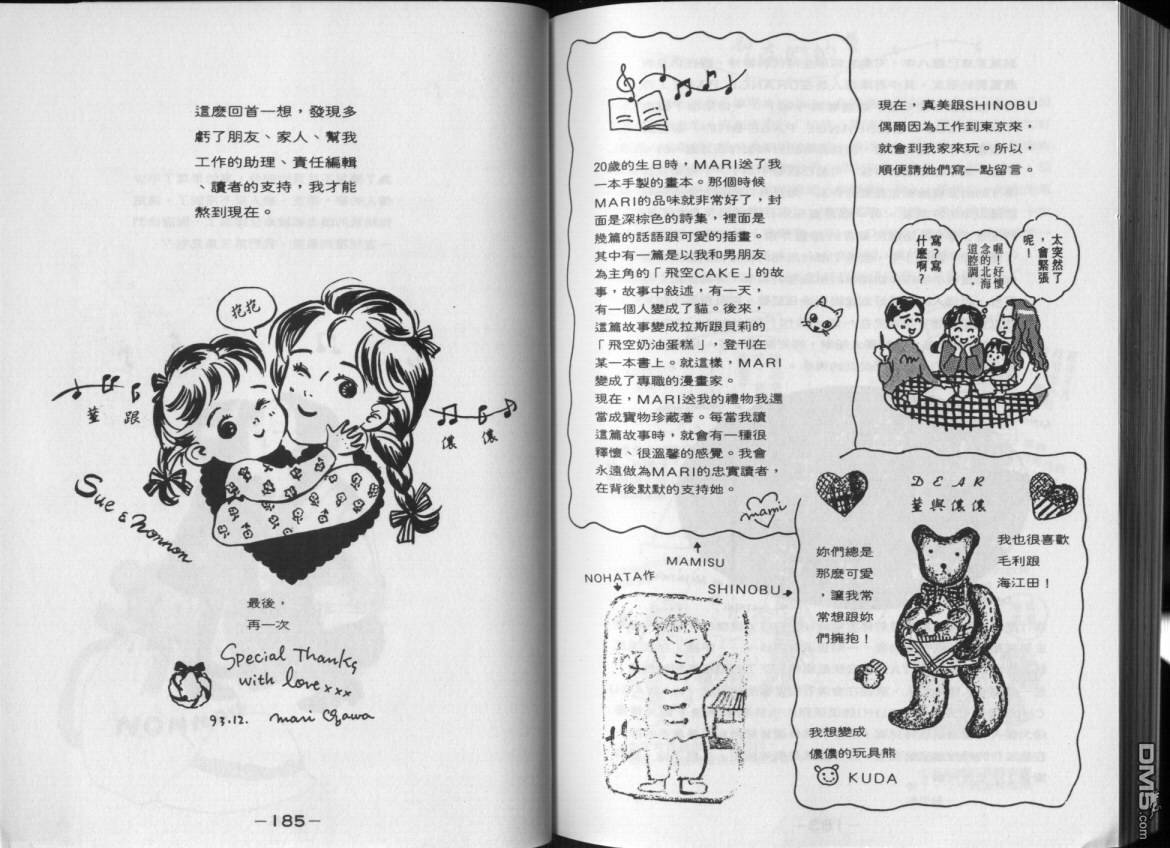 現在，真美跟SHINOBU
偶爾因為工作到東京來，
就會到我家來玩。所以，
順便請她們寫一點留言。
太突然了
，會緊張
呢！
喔！好懷
念的北海
道腔調，
寫？寫
什麼啊？
20歲的生日時，MARI送了我
一本手製的畫本。那個時候
MARI的品味就非常好了，封
面是深棕色的詩集，裡面是
幾篇的話語跟可愛的插畫。
其中有一篇是以我和男朋友
為主角的「飛空CAKE」的故
事，故事中敘述，有一天，
有一個人變成了貓。後來，
這篇故事變成拉斯跟貝莉的
「飛空奶油蛋糕」，登刊在
某一本書上。就這樣，MARI
變成了專職的漫畫家。
現在，MARI送我的禮物我還
當成寶物珍藏著。每當我讀
這篇故事時，就會有一種很
釋懷、很溫馨的感覺。我會
永遠做為MARI的忠實讀者，
在背後默默的支持她。
mami
MAMISU
NOHATA作
SHINOBU
DEAR
菫與儂儂
我也很喜歡
毛利跟
海江田！
妳們總是
那麼可愛
，讓我常
常想跟妳
們擁抱！
我想變成
儂儂的玩具熊
KUDA
這麼回首一想，發現多
虧了朋友、家人、幫我
工作的助理、責任編輯
、讀者的支持，我才能
熬到現在。
抱抱
菫 跟
儂 儂
Sue & Nonnon
最後，
再一次
Special Thanks
with love xxx
93.12. mari Ogawa
－185－
DM5.com